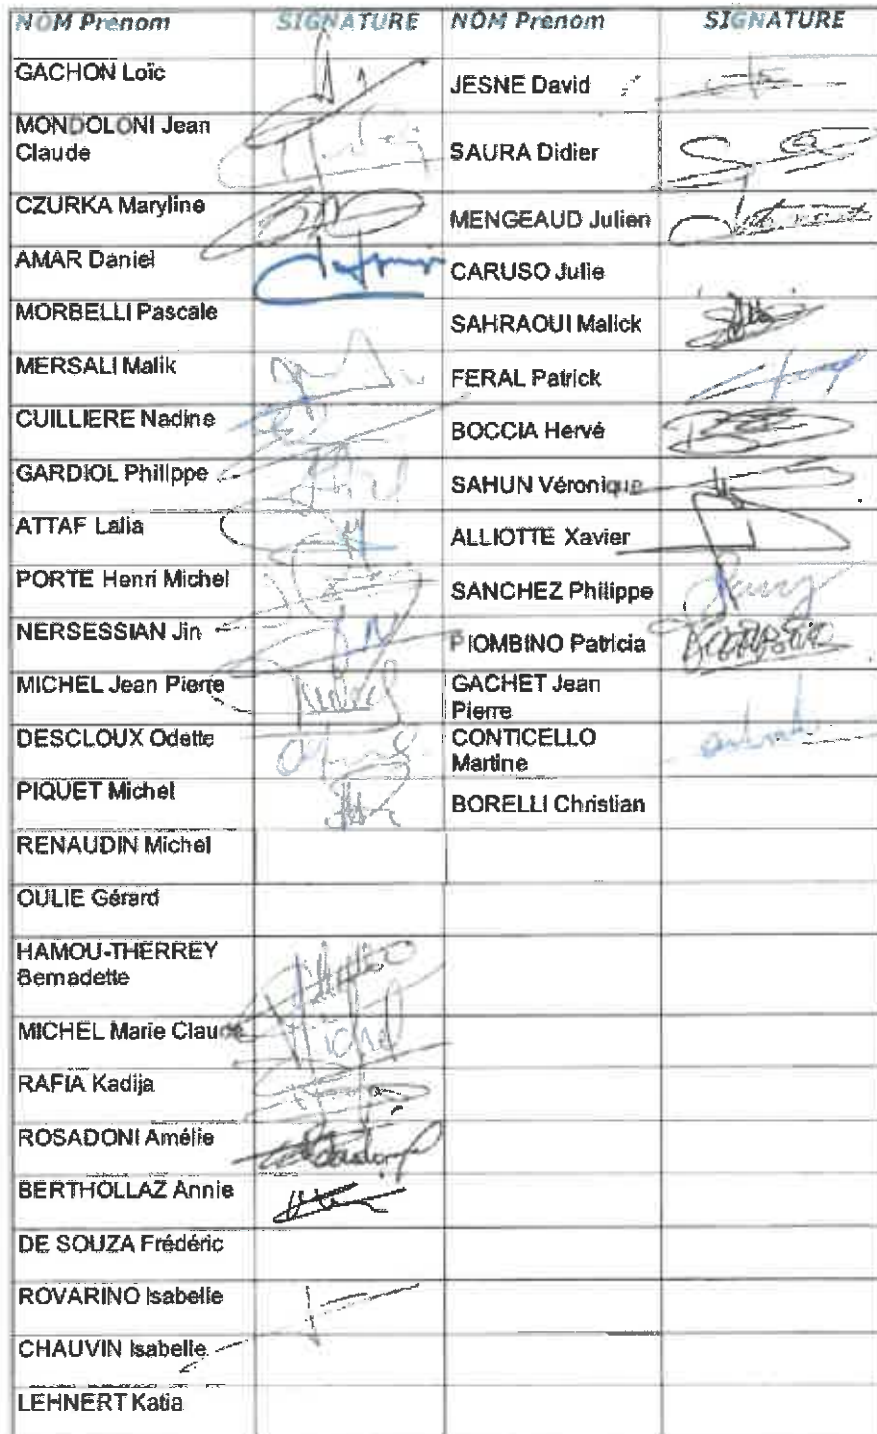 NOM Prenom SIGNATURE NOM Prenom SIGNATURE
GACHON Loïc JESNE David
MONDOLONI Jean
Claude SAURA Didier
CZURKA Maryline MENGEAUD Julien
AMAR Daniel CARUSO Julie
MORBELLI Pascale SAHRAOUI Malick
MERSALI Malik FERAL Patrick
CUILLIERE Nadine BOCCIA Hervé
GARDIOL Philippe SAHUN Véronique
ATTAF Lalia ALLIOTTE Xavier
PORTE Henri Michel SANCHEZ Philippe
NERSESSIAN Jin PIOMBINO Patricia
MICHEL Jean Pierre GACHET Jean
Pierre
DESCLOUX Odette CONTICELLO
Martine
PIQUET Michel BORELLI Christian
RENAUDIN Michel
OULIE Gérard
HAMOU-THERREY
Bernadette
MICHEL Marie Claude Michel
RAFIA Kadija
ROSADONI Amélie
BERTHOLLAZ Annie
DE SOUZA Frédéric
ROVARINO Isabelle
CHAUVIN Isabelle
LEHNERT Katia